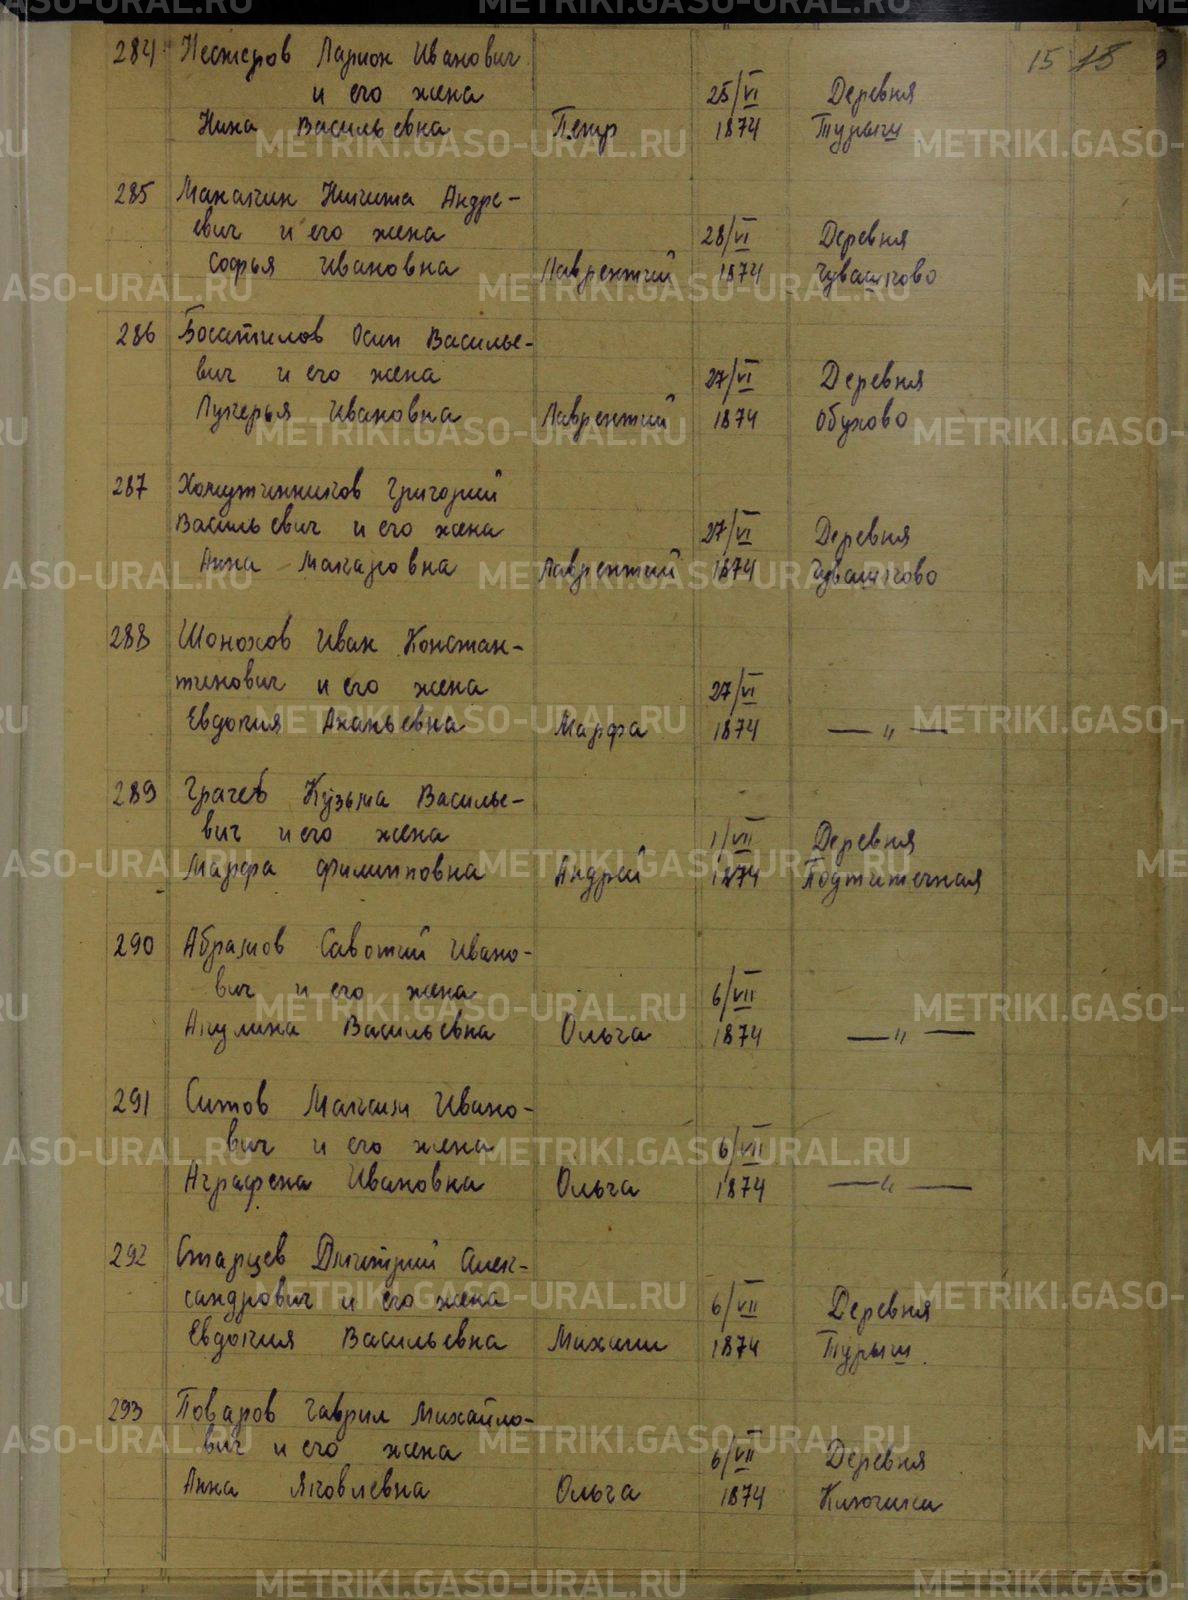 15 18
284 Нестеров Ларион Иванович
и его жена 25/VI Деревня
Нина Васильевна Петр 1874 Турыш
285 Макаткин Никита Андре-
евич и его жена 28/VI Деревня
Софья Ивановна Лаврентий 1874 Чувашково
286 Босатилов Осип Василье-
вич и его жена 27/VI Деревня
Лукерья Ивановна Лаврентий 1874 Обухово
287 Хомутинников Григорий
Васильевич и его жена 27/VI Деревня
Анна Макаровна Лаврентий 1874 Чувашково
288 Шонохов Иван Констан-
тинович и его жена 27/VI
Евдокия Ананьевна Марфа 1874 — " —
289 Грачев Кузьма Василье-
вич и его жена 1/VII Деревня
Марфа Филипповна Андрей 1874
290 Абрамов Савотий Ивано-
вич и его жена 6/VII
Акулина Васильевна Ольга 1874 — " —
291 Ситов Максим Ивано-
вич и его жена 6/VII
Аграфена Ивановна Ольга 1874 — " —
292 Старцев Дмитрий Алек-
сандрович и его жена 6/VII Деревня
Евдокия Васильевна Михаил 1874 Турыш
293 Поваров Гаврил Михайло-
вич и его жена 6/VII Деревня
Анна Яковлевна Ольга 1874 Ключики
METRIKI.GASO-URAL.RU